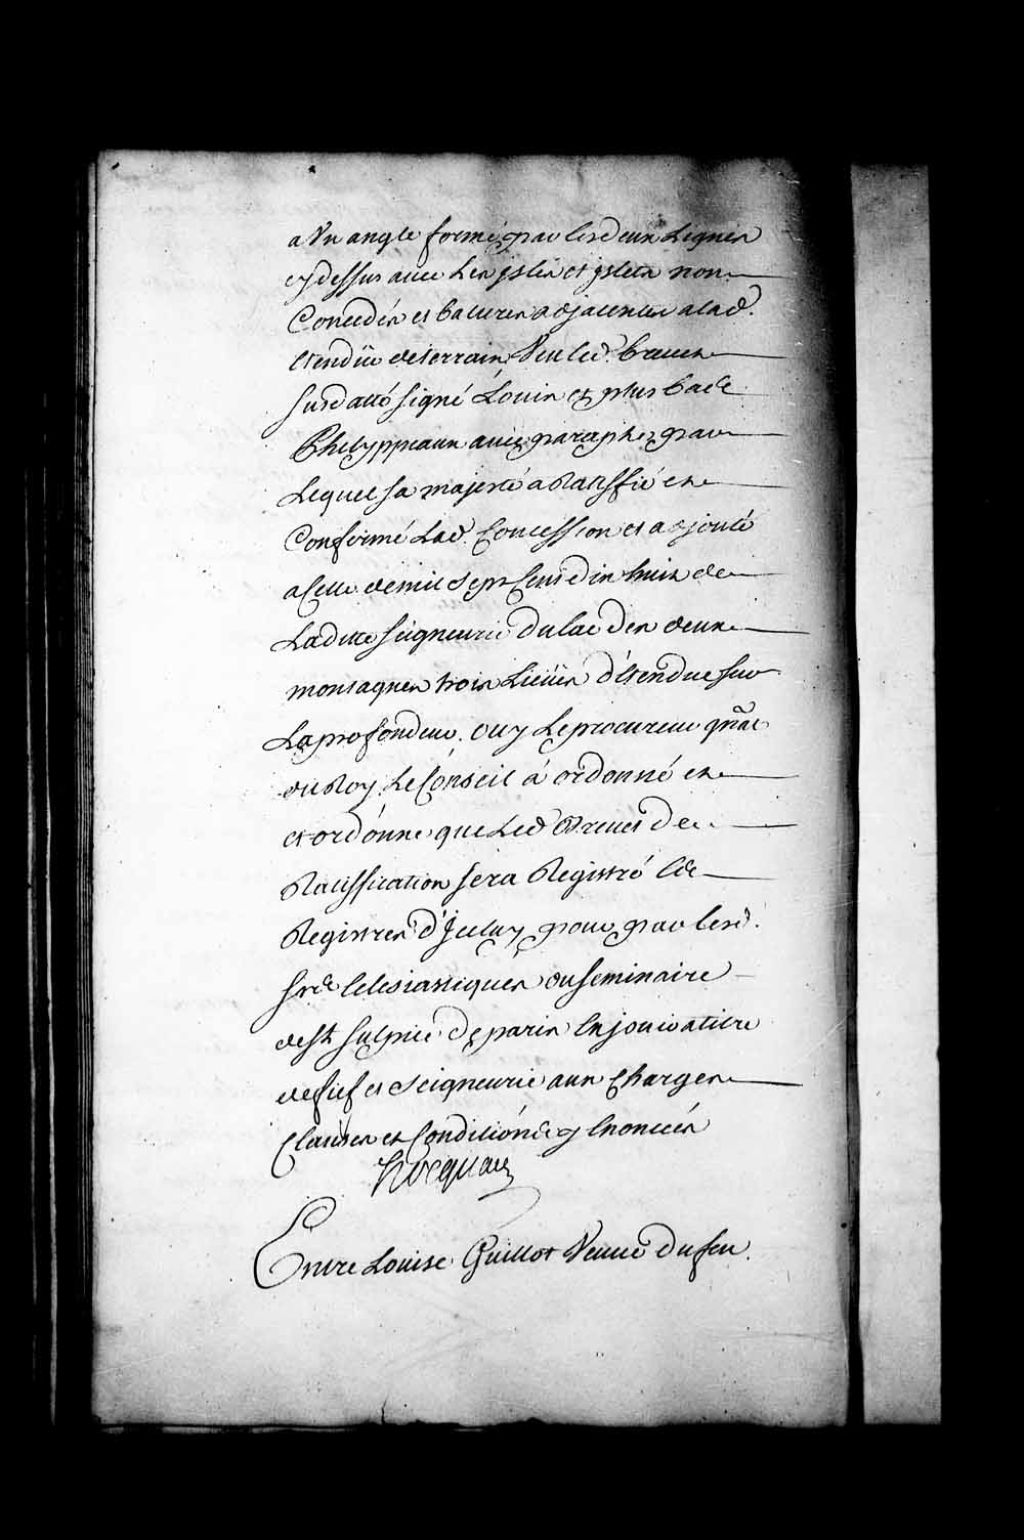 a Un angle formé par lesd deux Lignes
cy dessus avec Les jsles et jslets non
Concedés et batures adjacentes alad.
Etendüe de terrain, Veu led. brevet
Susdatté signé Loüis et plus bas
Phelyppeaux avec paraphe, par
Lequel sa majesté a Ratiffié et
Confirmé Lad. Concession et adjouté
a Celle de mil sept Cens dix huit de
Laditte seigneurie du lac des deux
montagnes trois Lieües d'étendue sur
La profondeur. Ouy Le procureur gñal
du Roy, Le Conseil á ordonné et
et ordonne que Led Brevet de
Ratiffication sera Registré Es
Registres d'Jceluy pour par lesd.
Srs Eclesiastiques du seminaire
de St. Sulpice de paris En jouir atitre
de fief et seigneurie aux Charges
Clauses et Conditions y Enoncées
Hocquart
Entre Louise Guillot Veuve du feu